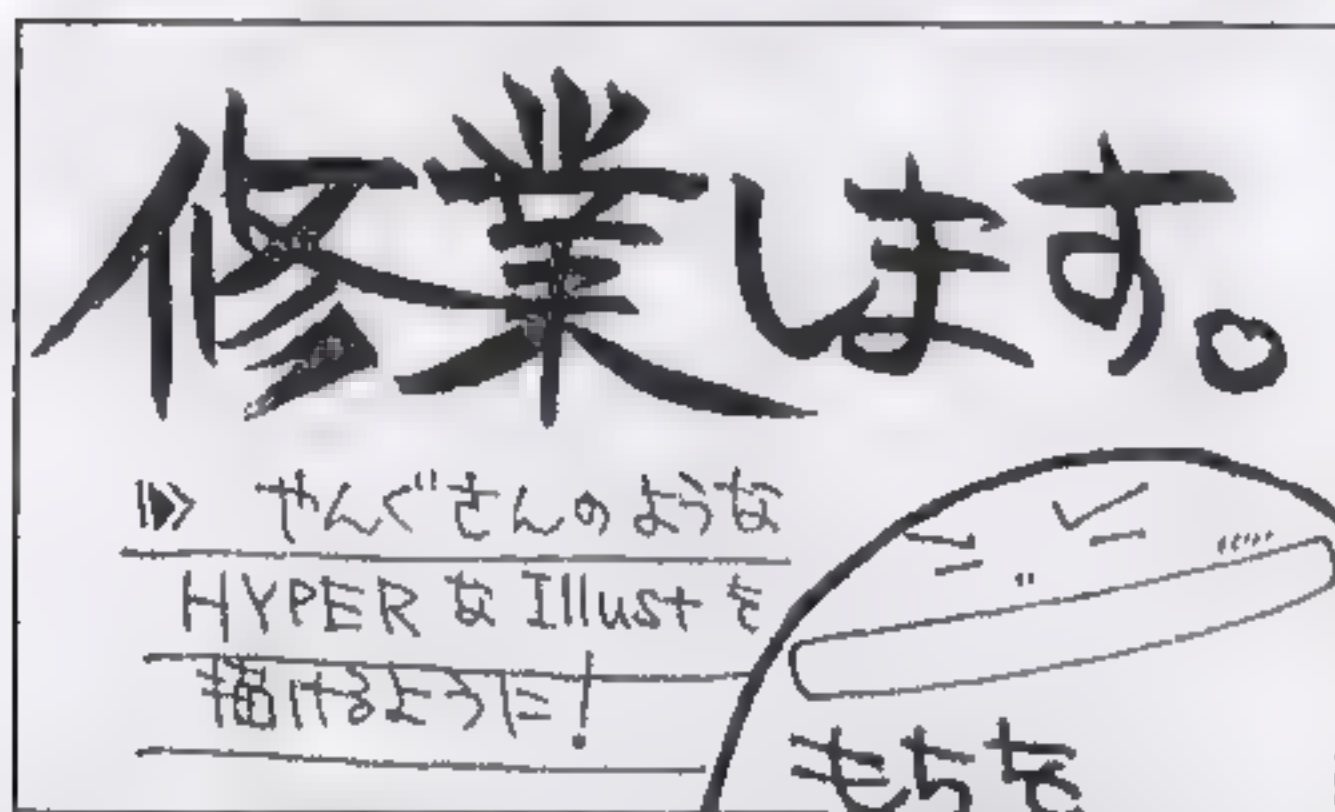 修業します。
やんぐさんのような
HYPERなIllustを
描けるように!
もちを